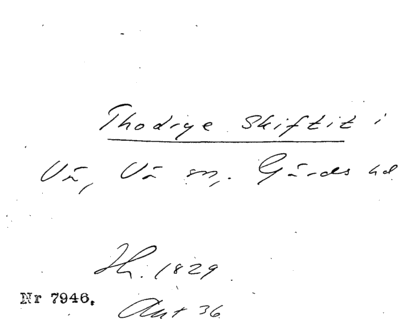 Thodrye Skiftit i
Vä, Vä sn, Gärds hd
Hs. 1829
Nr 7946.
Ant 36